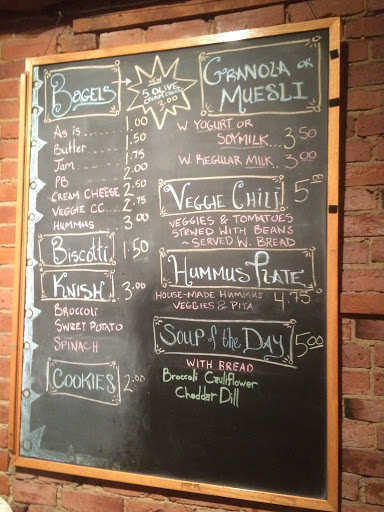 Bagels
As is........1.00
Butter......1.50
Jam........1.75
PB..........2.00
CREAM CHEESE 2.50
VEGGIE CC....2.75
HUMMUS 3.00
Biscotti 1.50
KNISH 3.00
BROCCOLI
SWEET POTATO
SPINACH
COOKIES 2.00
NEW
5 OLIVE
CREAM CHEESE
3.00
GRANOLA OR
MUESLI
W. YOGURT OR
SOYMILK...3.50
W. REGULAR MILK.3.00
VEGGIE CHILI 5.00
VEGGIES & TOMATOES
STEWED WITH BEANS
~ SERVED W. BREAD
HUMMUS PLATE
HOUSE-MADE HUMMUS 4.75
VEGGIES & PITA
SOUP of the DAY 5.00
WITH BREAD
Broccoli Cauliflower
Cheddar Dill